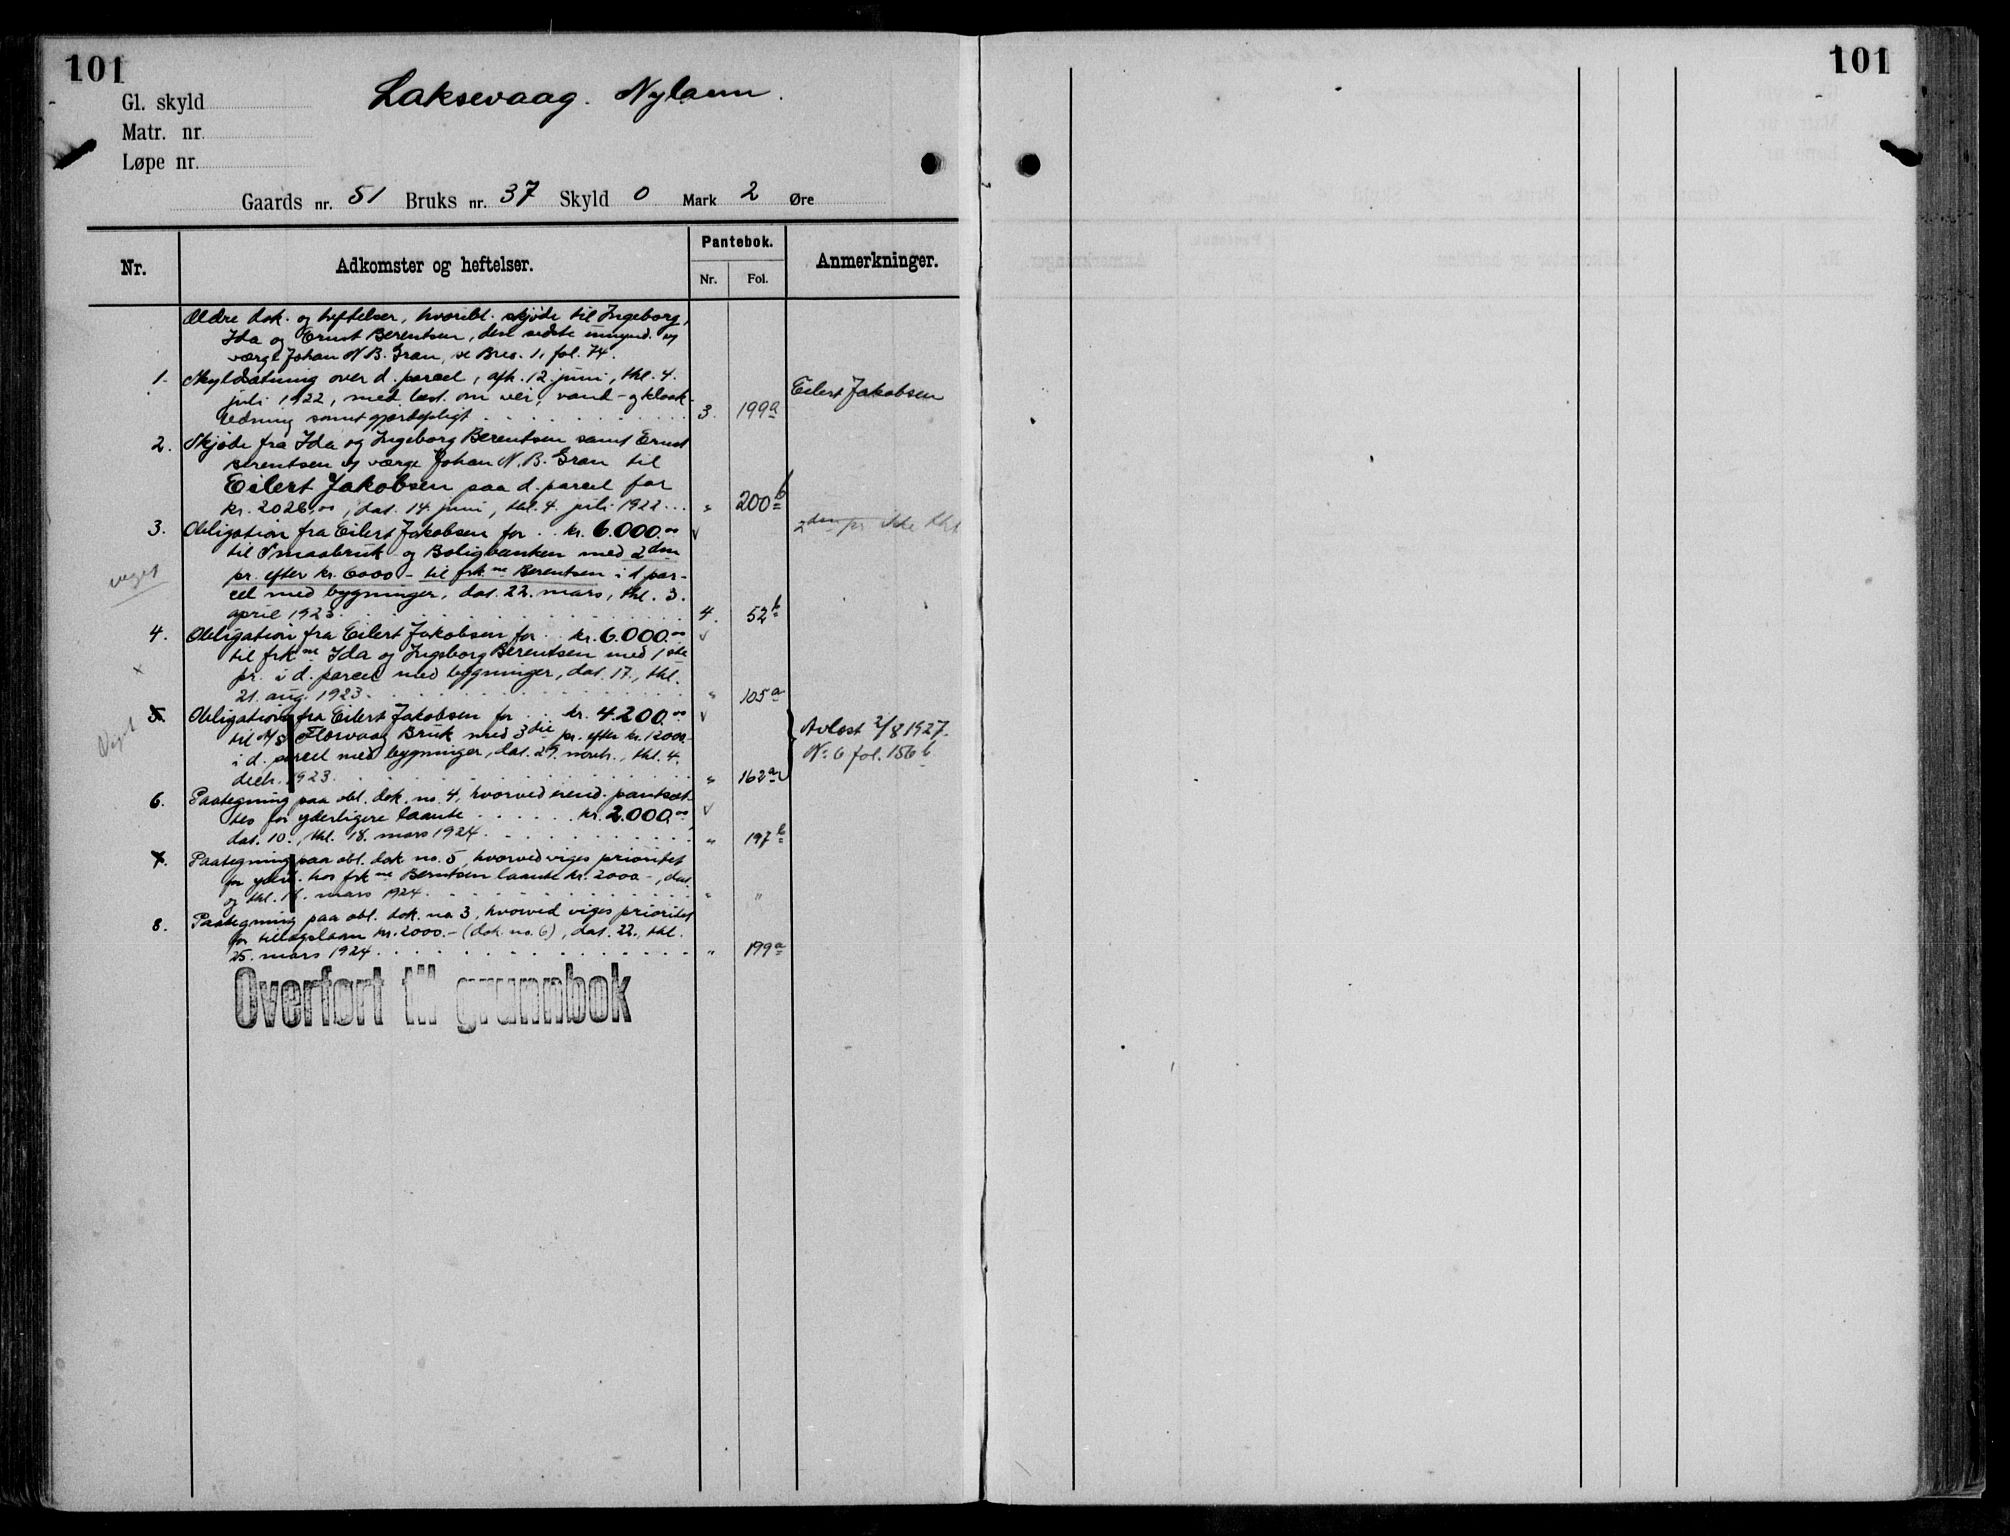 101
Gl. skyld
Laksevaag. Nylaun.
Matr. nr.
Løpe nr.
Gaards nr. 51 Bruks nr. 37 Skyld 0 Mark 2 Øre
Nr. Adkomster og heftelser. Pantebok. Anmerkninger.
Nr. Fol.
Ældre dok. og heftelser, hvoribl. skjøde til Ingeborg,
Ida og Ernst Berentsen, den sidste umynd. v
værge Johan N B. Gran, se Bres. 1, fol. 74.
1. Skyldsætning over d. parcel, afh. 12. juni, thl. 4.
juli 1922, med best. om vei, vand- og kloak-
ledning samt gjærdepligt 3. 199a
Eilert Jakobsen
2. Skjøde fra Ida og Ingeborg Berentsen samt Ernst
Berentsen v værge Johan N. B. Gran til
Eilert Jakobsen paa d. parcel for
kr. 2026,00, dat. 14 juni, thl. 4. juli 1922... " 200b
3. Obligation fra Eilert Jakobsen for .. kr. 6.000.00 √
2den pr ikke thl
til Smaabruk- og Boligbanken med 2den
pr. efter kr. 6000 - til frkne Berentsen i d. par-
viget
cel med bygninger, dat. 22. mars, thl. 3.
april 1923. 4. 52b
4. Obligation fra Eilert Jakobsen for .. kr. 6.000.00 √
til frkne Ida og Ingeborg Berentsen med 1ste
x
pr. i d. parcel med bygninger, dat. 17., thl.
21. aug. 1923. " 105a
5. Obligation fra Eilert Jakobsen for ... kr. 4.200.00 √
Viget
til A/S Florvaag Bruk med 3die pr. efter kr. 12000-
i d. parcel med bygninger, dat. 29. novbr., thl. 4.
decbr. 1923. " 162a
Avløst 2/8 1927.
No 6 fol. 156b
6. Paategning paa obl. dok. no. 4, hvorved eiend. pantsæt-
tes for yderligere laante ...... kr. 2.000.00 √
dat. 10., thl. 18. mars 1924. " 197b
7. Paategning paa obl. dok. no. 5, hvorved viges prioritet
for yderl. hos frkne Berntsen laante kr. 2000 -, dat.
og thl. 18. mars 1924. " "
8. Paategning paa obl. dok. no. 3, hvorved viges prioritet
for tillægslaan kr. 2000.- (dok. no. 6), dat. 22., thl.
25. mars 1924. " 199a
Overført til grunnbok
101